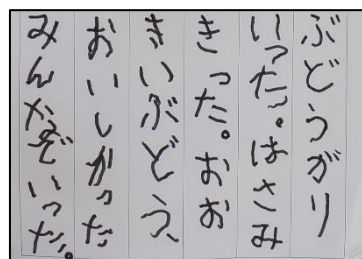 ぶどうがり
いった。はさみ
きった。おお
きいぶどう、
おいしかった
みんなでいった。